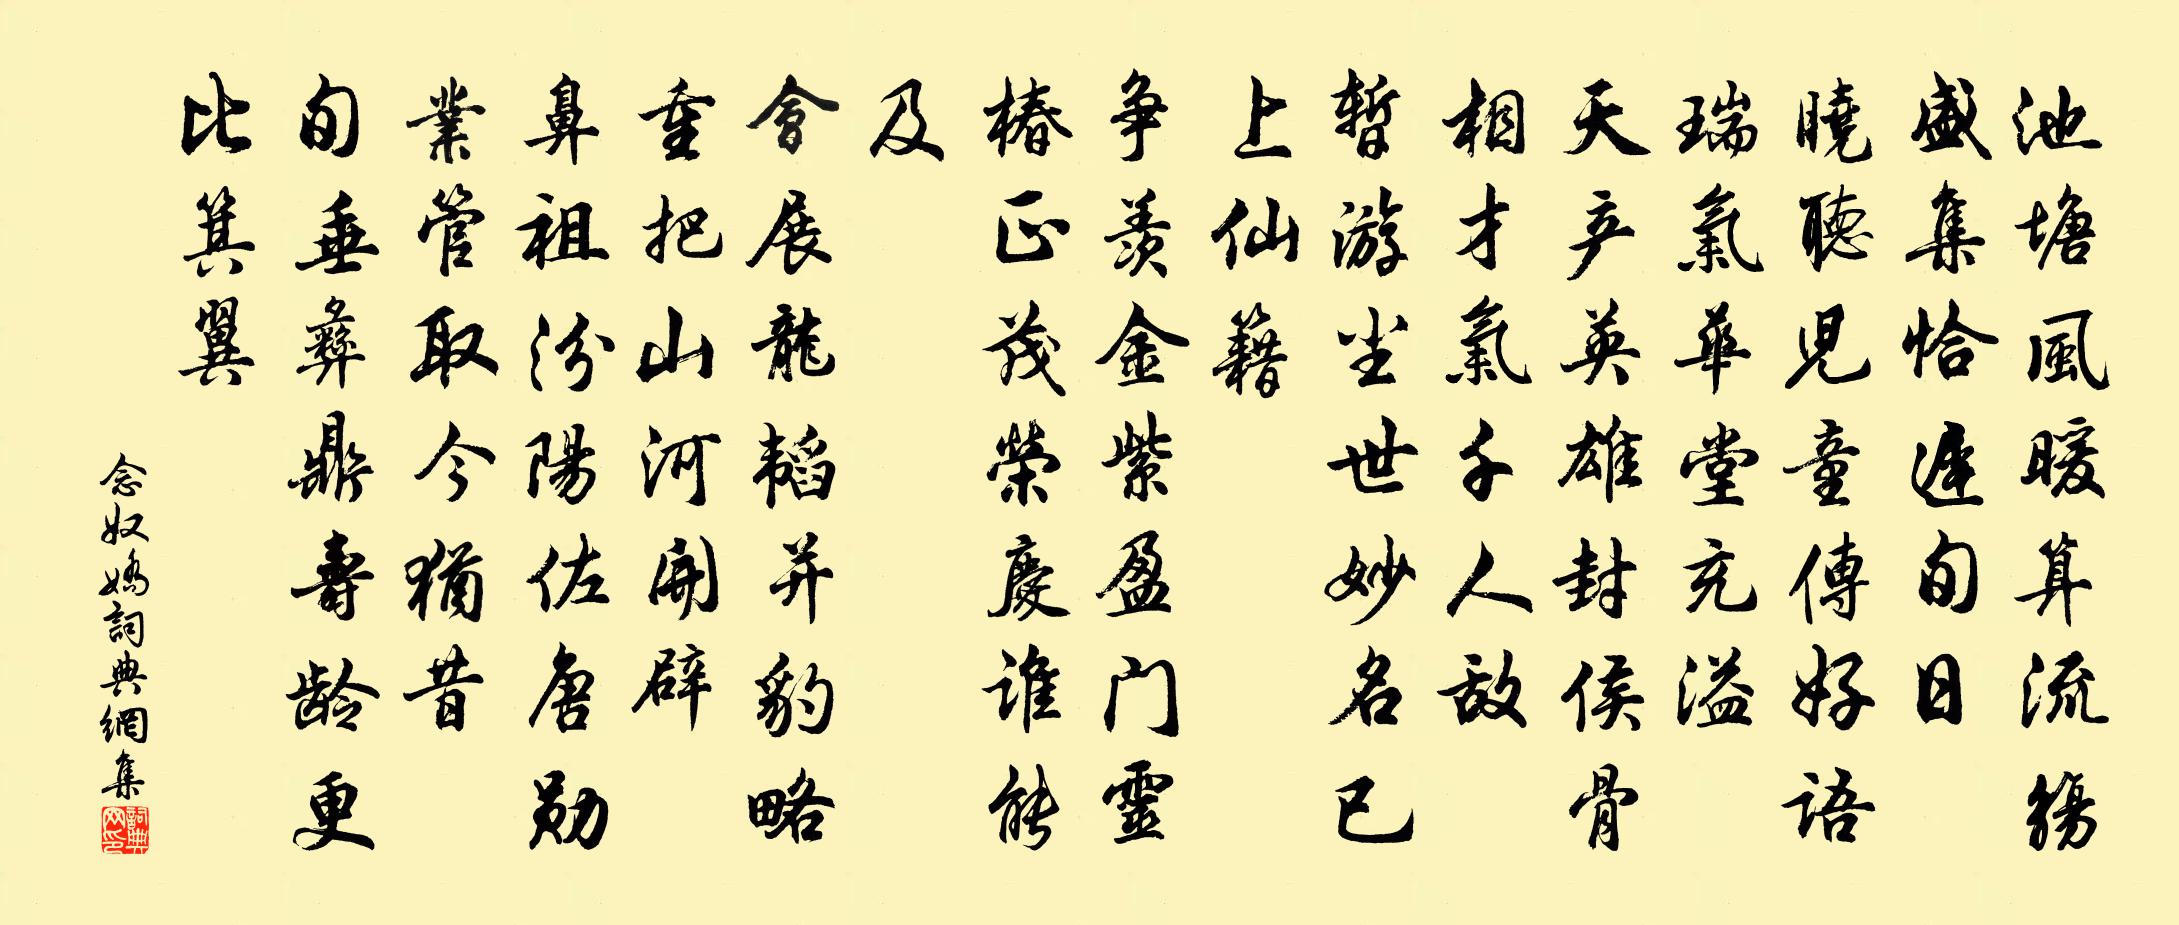 池塘風暖算流觴
盛集恰遲旬日
曉聽兒童傳好語
瑞氣華堂充溢
天产英雄封侯骨
相才氣千人敌
暫游尘世妙名已
上仙籍
争羨金紫盈门靈
椿正茂榮慶谁能
及
會展龍韬并豹略
重把山河開辟
鼻祖汾陽佐唐勋
業管取今猶昔
旬垂彝鼎壽龄更
比箕翼
念奴嬌詞典網集
詞典网印